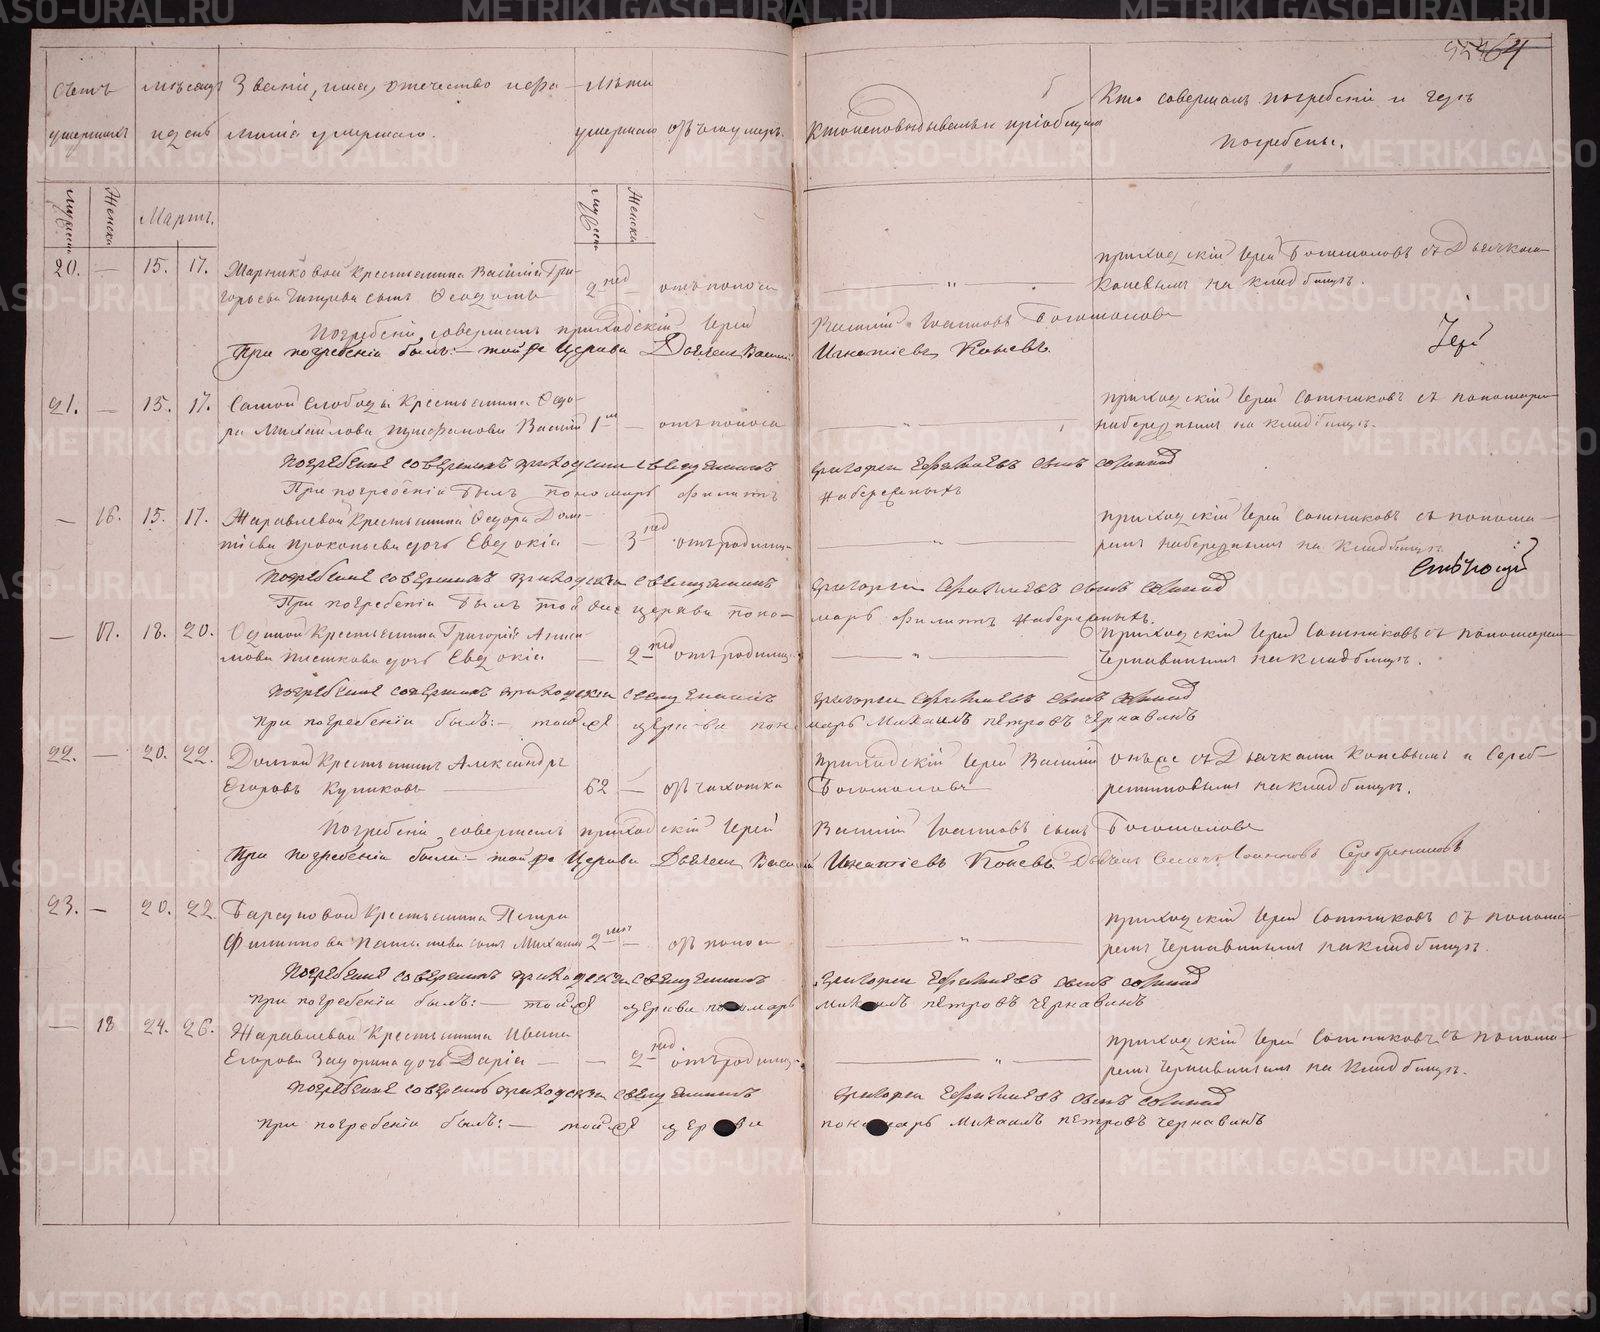 Счетъ умершихъ
Мужеска
Женска
мѣсяцъ и день
Мартъ.
Званіе, имя, отчество и фамилія умершаго.
Лѣта умершаго
Мужеска
Женска
отъ чего умеръ.
Кто исповѣдывалъ и пріобщалъ
Кто совершалъ погребеніе и гдѣ погребены.
20. — 15. 17.
крестьянина Василія Гри-
горьева сынъ Ѳеодотъ 2 нед — отъ поноса
приходскій Іерей Богомоловъ съ Дьячкомъ
Коневымъ на кладбищѣ.
Погребеніе совершалъ приходскій Іерей Василій Іоанновъ Богомоловъ
При погребеніи былъ:— той же Церкви Дьячекъ Василій Игнатіевъ Коневъ.
Іерей
21. — 15. 17.
Самой слободы Крестьянина Ѳедо-
ра Михайлова Василій 1 — отъ поноса
приходскій Іерей Сотниковъ съ пономаремъ
Набережнымъ на кладбищѣ.
Погребение совершалъ приходскии священникъ Григории Ефимиевъ сынъ Сотников
При погребеніи былъ пономарь Филиппъ Набережныхъ
— 16. 15. 17.
Журавлевой Крестьянина Ѳедора
Прокопьева дочь Евдокія — 3 нед отъ родимц.
приходскій Іерей Сотниковъ съ понома-
ремъ Набережнымъ на кладбищѣ.
Погребение совершалъ приходски священникъ Григории Ефимиевъ сынъ Сотников
При погребеніи былъ той же церкви поно-
марь Филиппъ Набережныхъ.
— 17. 18. 20.
Одиной Крестьянина Григорія
дочь Евдокія — 2 нед отъ родимц.
приходскій Іерей Сотниковъ съ пономаремъ
Чернавинымъ на кладбищѣ.
Погребение совершалъ приходски священникъ Григории Ефимиевъ сынъ Сотников
при погребеніи былъ:— той же церкви пономарь Михаилъ Петровъ Чернавинъ
22. — 20. 22.
Долгой Крестьянинъ Александръ
Егоровъ Куликовъ 62 — отъ чахотки
приходскій Іерей Василій
Богомоловъ
онъ же съ Дьячками Коневымъ и Сереб-
рениковымъ на кладбищѣ.
Погребеніе совершалъ приходскій Іерей Василій Іоанновъ сынъ Богомоловъ
При погребеніи были:— той же Церкви Дьячекъ Василій Игнатіевъ Коневъ Дьячекъ Іоанновъ Серебрениковъ
23. — 20. 22.
Барсуковой Крестьянина Петра
Филиппова сынъ Михаилъ 2 — отъ поноса
приходскій Іерей Сотниковъ съ понома-
ремъ Чернавинымъ на кладбищѣ.
Погребение совершалъ приходски священникъ Григории Ефимиевъ сынъ Сотников
при погребеніи былъ:— той же церкви пономарь Михаилъ Петровъ Чернавинъ
— 18 24. 26.
Журавлевой Крестьянина Ивана
Егорова Задорина дочь Дарія — — 2 нед. отъ родимц.
приходскій Іерей Сотниковъ съ понома-
ремъ Чернавинымъ на кладбищѣ.
Погребение совершалъ приходски священникъ Григории Ефимиевъ сынъ Сотников
при погребеніи былъ:— той же церкви пономарь Михаилъ Петровъ Чернавинъ
METRIKI.GASO-URAL.RU